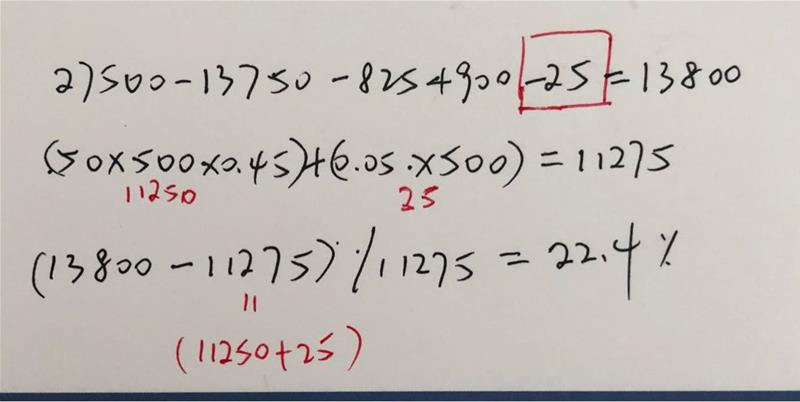 27500-13750-825+900-25=13800
(50×500×0.45)+(0.05.×500)=11275
11250 25
(13800-11275)/11275=22.4%
11
(11250+25)